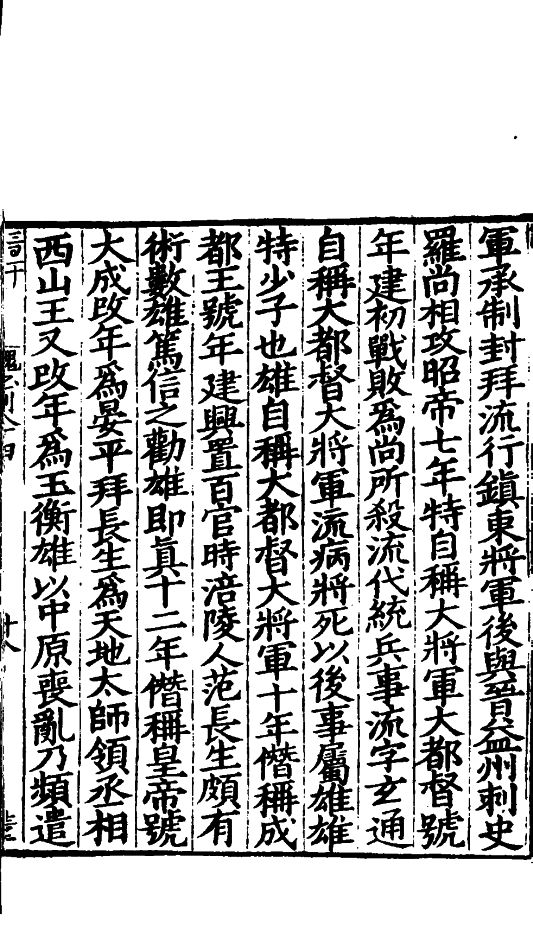 軍承制封拜流行鎮東將軍後與晉益州刺史
羅尚相攻昭帝七年特自稱大將軍大都督號
年建初戰敗爲尚所殺流代統兵事流字玄通
自稱大都督大將軍流病將死以後事屬雄雄
特少子也雄自稱大都督大將軍十年僭稱成
都王號年建興置百官時涪陵人范長生頗有
術數雄篤信之勸雄即眞十二年僭稱皇帝號
大成改年爲晏平拜長生爲天地太師領丞相
西山王又改年爲玉衡雄以中原喪亂乃頻遣